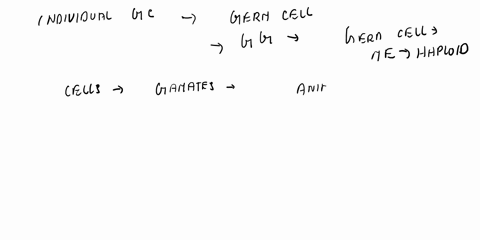 INDIVIDUAL GC → GERM CELL
→ GG → GERM CELL →
ME → HAPLOID
CELLS → GAMATES → ANI